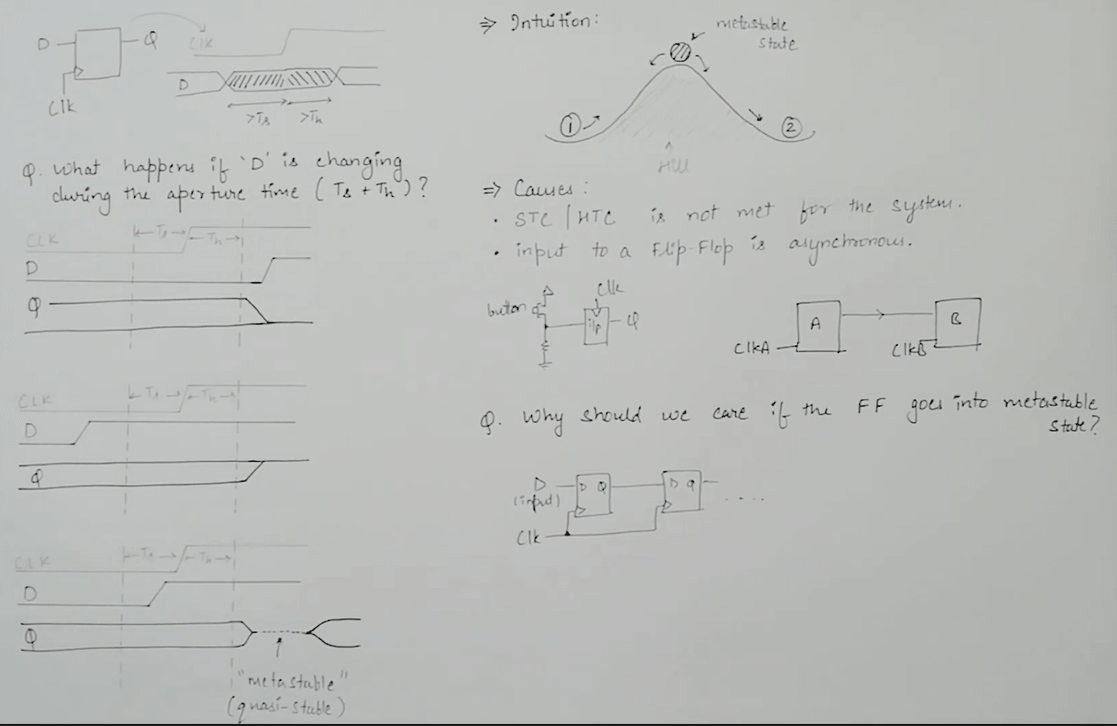 D
Q
Clk
Clk
D
>Ts
>Th
Q. What happens if 'D' is changing
during the aperture time (Ts + Th)?
CLK
Ts
Th
D
Q
CLK
Ts
Th
D
Q
CLK
Ts
Th
D
Q
"metastable"
(quasi-stable)
⇒ Intuition:
metastable
state
1
2
Hill
⇒ Causes:
• STC / HTC is not met for the system.
• input to a Flip-Flop is asynchronous.
button
Clk
i/p
Q
A
ClkA
B
ClkB
Q. Why should we care if the FF goes into metastable
state?
D
(input)
D Q
D Q
....
Clk